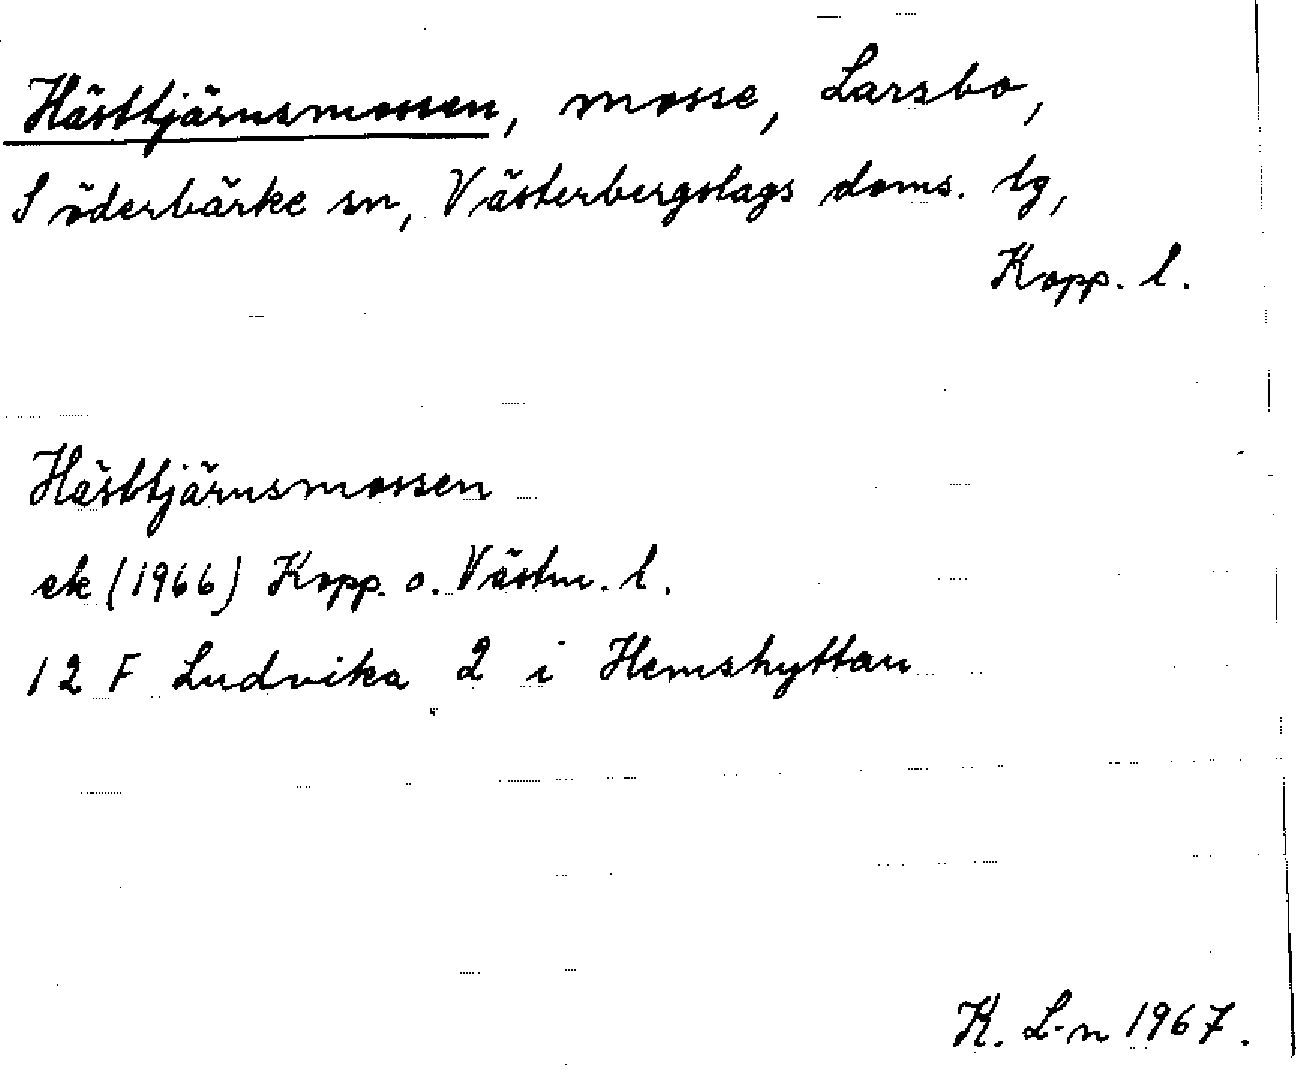 Hästtjärnsmossen, mosse, Larsbo,
Söderbärke sn, Västerbergslags doms. lg,
Kopp. l.
Hästtjärnsmossen
ek (1966) Kopp. o. Västm. l.
12 F Ludvika 2 i Hemshyttan
K. L-n 1967.